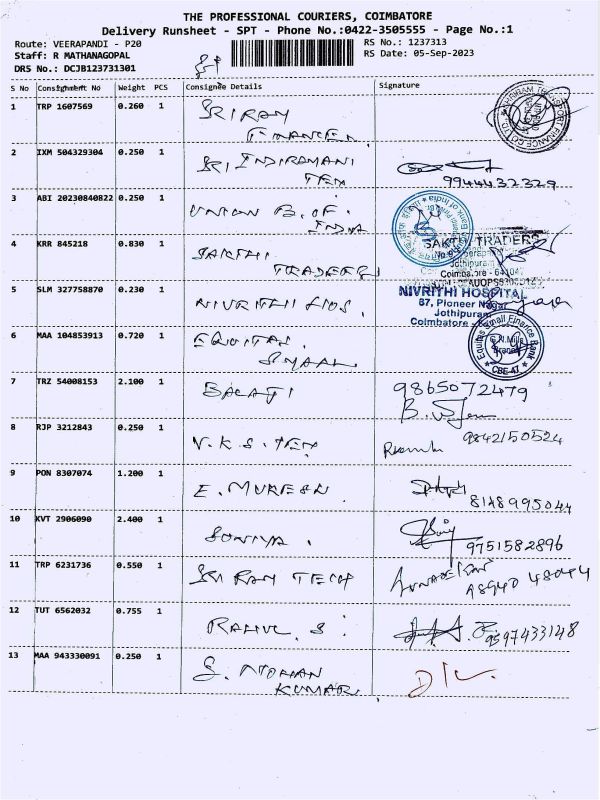 THE PROFESSIONAL COURIERS, COIMBATORE
Delivery Runsheet - SPT - Phone No.:0422-3505555 - Page No.:1
Route: VEERAPANDI - P20
RS No.: 1237313
Staff: R MATHANAGOPAL
RS Date: 05-Sep-2023
DRS No.: DCJB123731301
S No Consignment No Weight PCS Consignee Details Signature
1 TRP 1607569 0.260 1 SRIRAM
FINANCE
2 IXM 504329304 0.250 1 SRI INDIRAMANI
TEX
9944432329
3 ABI 20230840822 0.250 1 UNION B. OF.
INDIA
4 KRR 845218 0.830 1 SAKTHI
TRADERS
SAKTHI TRADERS
Jothipuram
Coimbatore - 64104
5 SLM 327758870 0.230 1 NIVRITHI HOS.
NIVRITHI HOSPITAL
87, Pioneer Nagar
Jothipuram
Coimbatore
6 MAA 104853913 0.720 1 EQUITAS
SMAAL
Equitas Small Finance Bank
CBE-47
7 TRZ 54008153 2.100 1 BALAJI 9865072479
8 RJP 3212843 0.250 1 V.K.S. TEX 9842150524
9 PON 8307074 1.200 1 E. MURESAN 8148995044
10 KVT 2906090 2.400 1 SONIYA. 9751582896
11 TRP 6231736 0.550 1 SRI RAM TECH
12 TUT 6562032 0.755 1 RAHUL. S. 9597433148
13 MAA 943330091 0.250 1 S. MOHAN
KUMAR